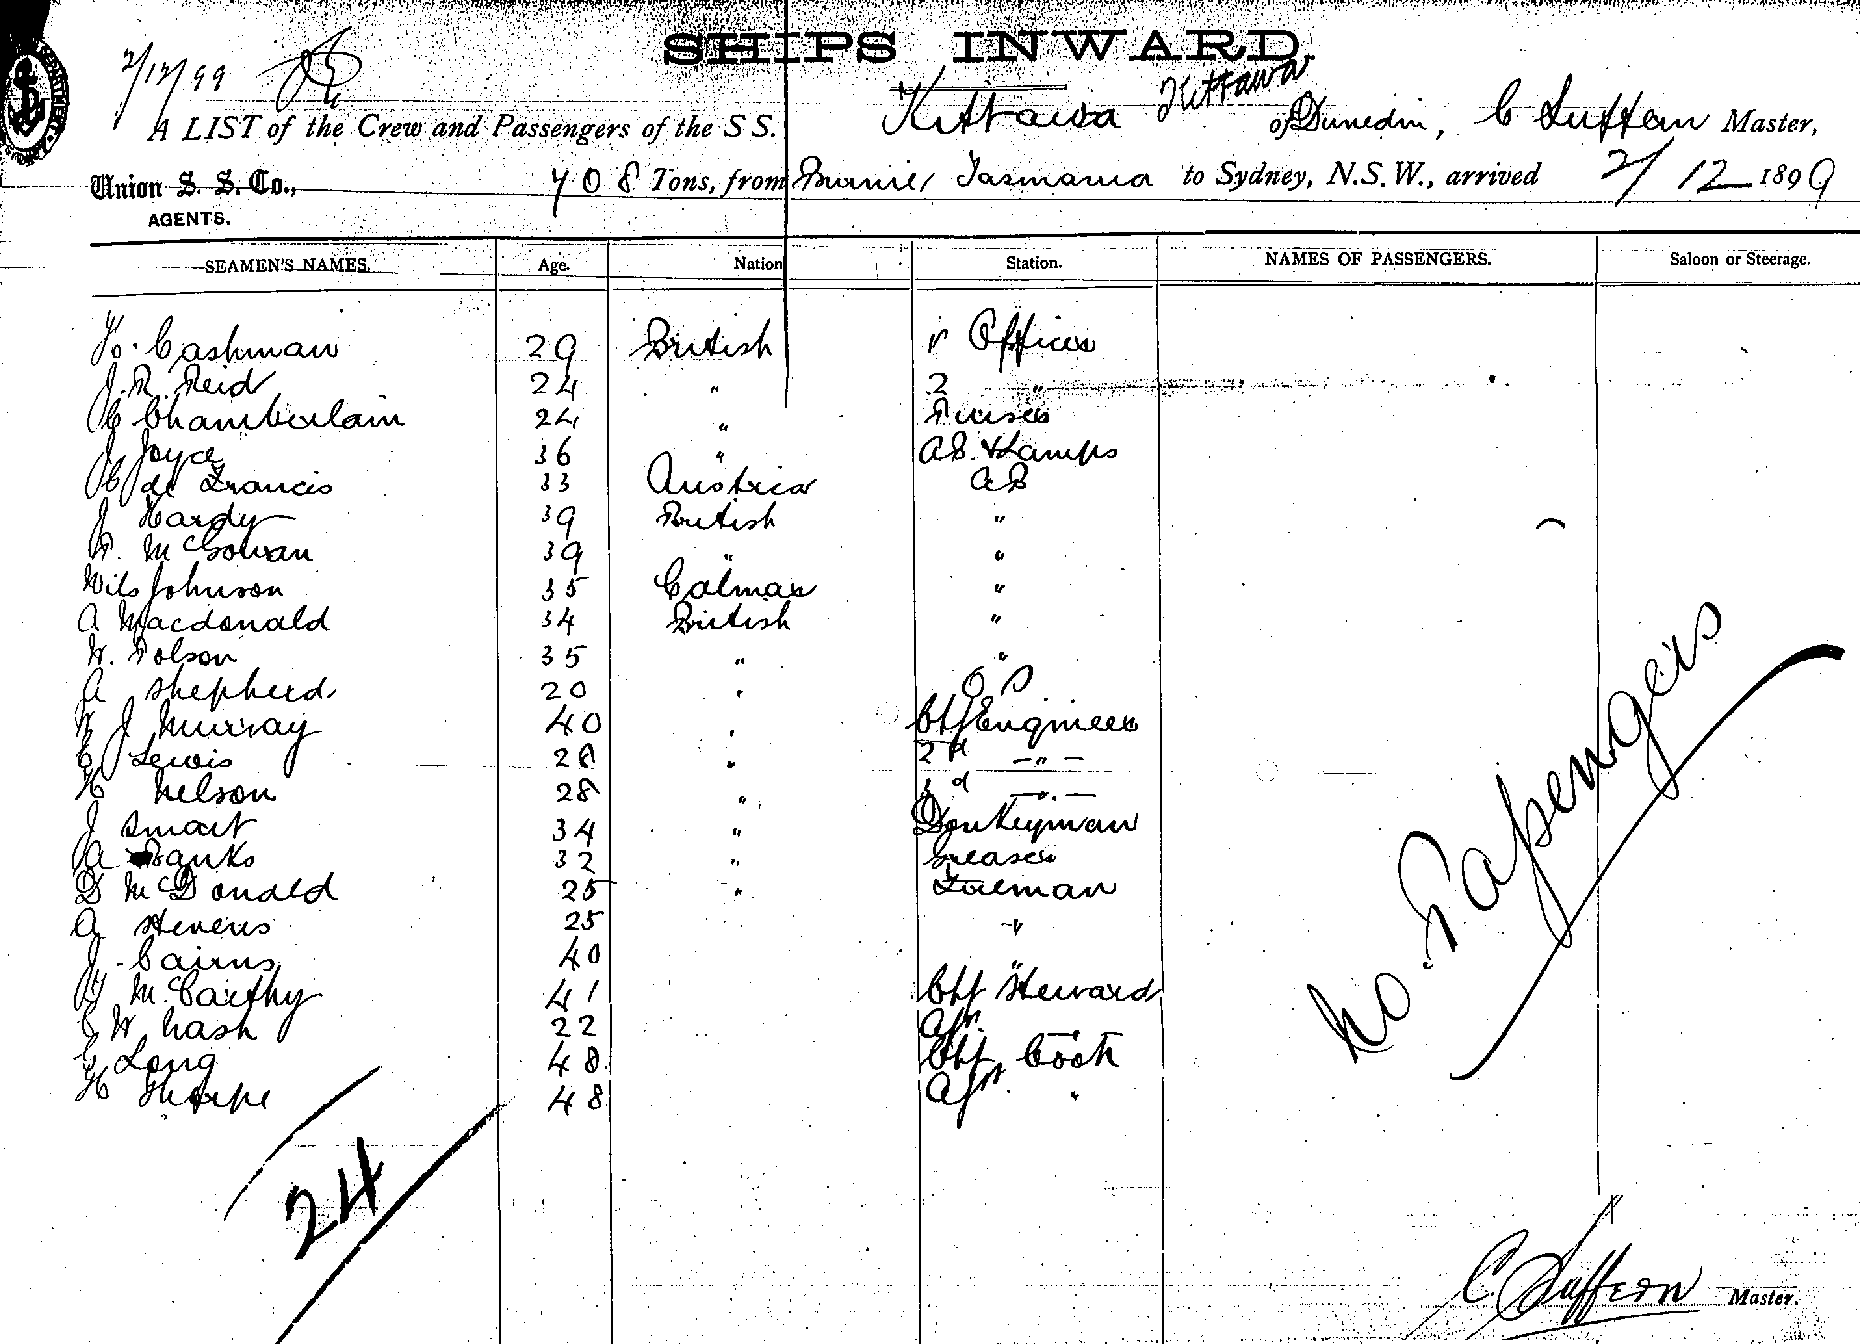 SHIPS INWARD.
2/12/99
Kittawa Kittawa
A LIST of the Crew and Passengers of the S S. of Dunedin, C Suffern Master,
Union S. S. Co., 408 Tons, from Burnie, Tasmania to Sydney, N.S.W., arrived 2/12 1899
AGENTS.
SEAMEN'S NAMES. Age. Nation Station. NAMES OF PASSENGERS. Saloon or Steerage.
Cashman 29 British 1 Officer
J. R. Reid 24 " 2 "
C Chamberlain 24 " Purser
J Joyce 36 " AB & Lamps
C de Francis 33 Austria AB
J Hardy 39 British "
R. McGowan 39 " "
Nils Johnson 35 Calmar "
A Macdonald 34 British "
W. Polson 35 " "
A Shepherd 20 " O S
W J Murray 40 " Chf Engineer
C J Lewis 28 " 2nd - " -
H Nelson 28 " 3d - " -
J Smart 34 " Donkeyman
A Banks 32 " Greaser
D McDonald 25 " Fireman
A Stevens 25 "
J. Cairns 40 "
McCarthy 41 Chf Steward
E W Nash 22 Ast. "
G Long 48 Chf Cook
H Thorpe 48 Ast. "
No. Passengers
24
C Suffern Master.